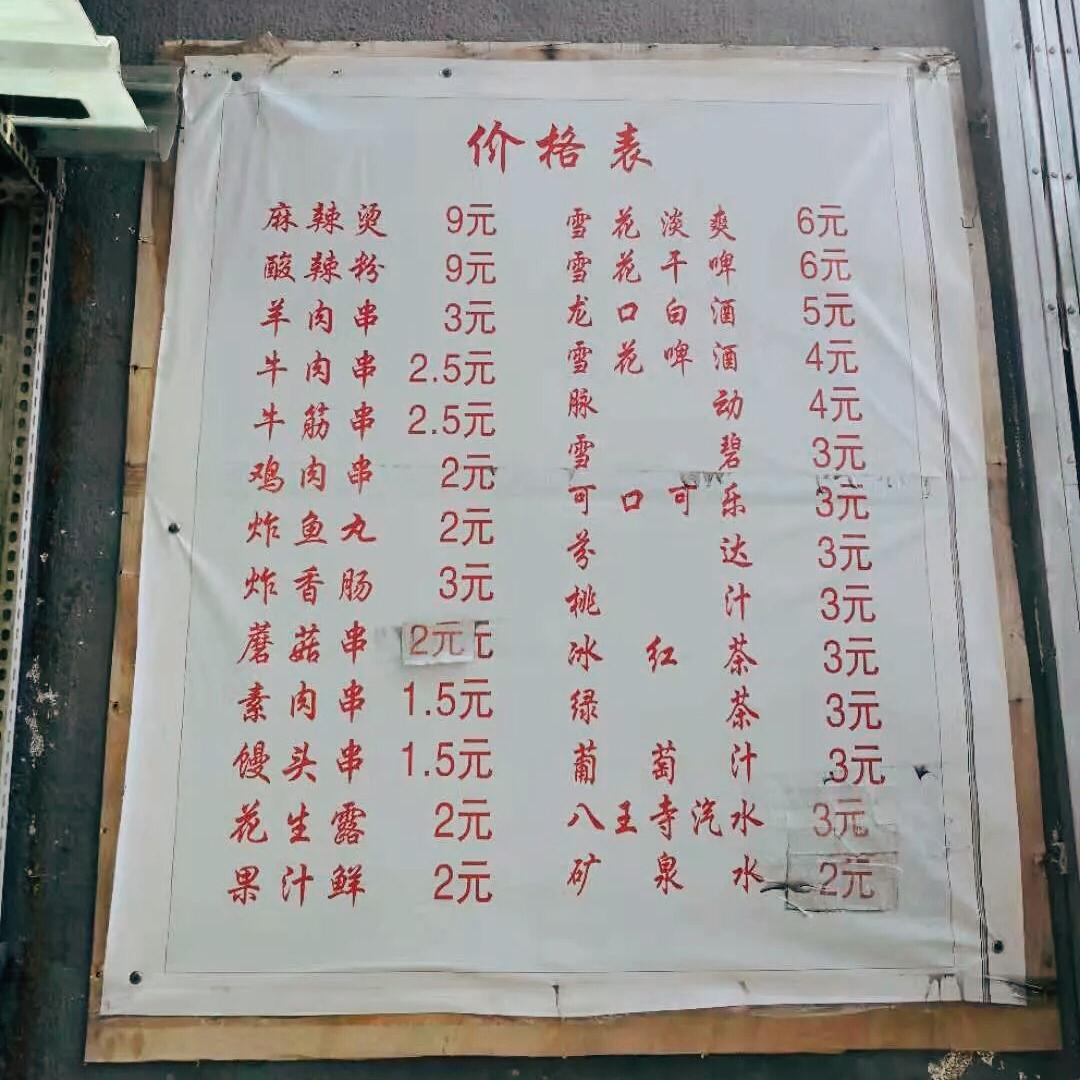 价格表
麻辣烫 9元 雪花淡爽 6元
酸辣粉 9元 雪花干啤 6元
羊肉串 3元 龙口白酒 5元
牛肉串 2.5元 雪花啤酒 4元
牛筋串 2.5元 脉动 4元
鸡肉串 2元 雪碧 3元
炸鱼丸 2元 可口可乐 3元
炸香肠 3元 芬达 3元
蘑菇串 2元 桃汁 3元
素肉串 1.5元 冰红茶 3元
馒头串 1.5元 绿茶 3元
花生露 2元 葡萄汁 3元
果汁鲜 2元 八王寺汽水 3元
矿泉水 2元